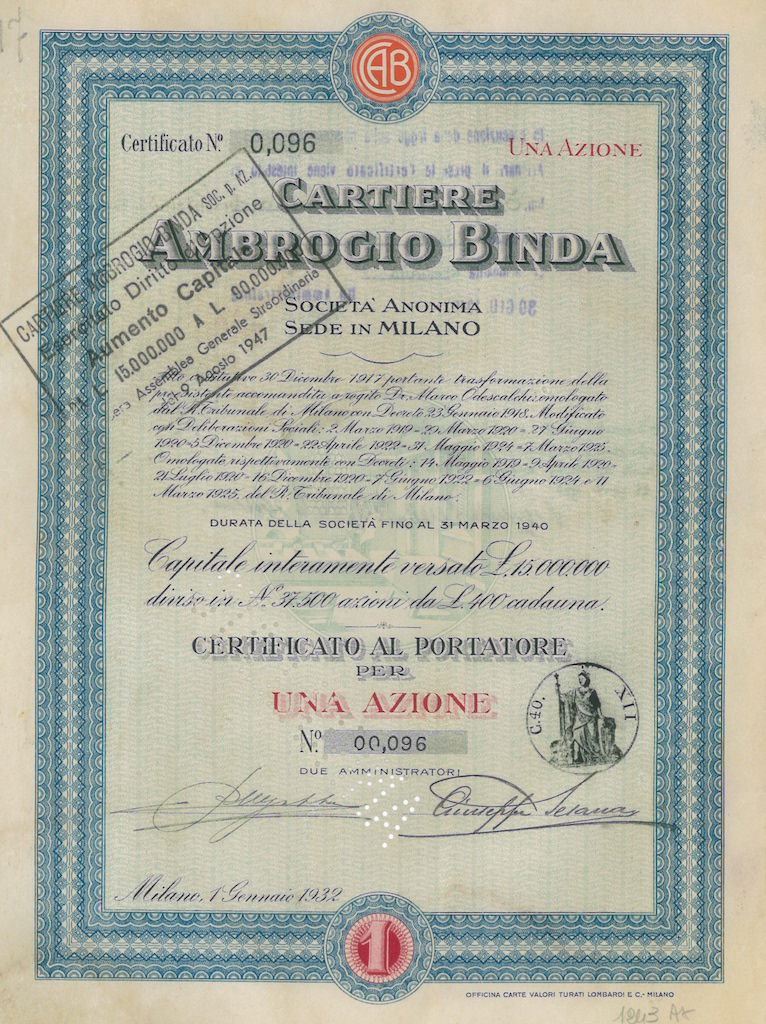 CAB
Certificato Nº 0,096
UNA AZIONE
CARTIERE
AMBROGIO BINDA
SOCIETÀ ANONIMA
SEDE IN MILANO
CARTIERE AMBROGIO BINDA SOC. p. AZ.
Esercitato Diritto di Opzione
Aumento Capitale
da L. 15.000.000 A L. 90.000.000
Assemblea Generale Straordinaria
del 2 Agosto 1947
30 Dicembre 1917 portante trasformazione della
preesistente accomandita a rogito Dr. Marco Odescalchi, omologato
dal R. Tribunale di Milano con Decreto 23 Gennaio 1918. Modificato
con Deliberazioni Sociali: 2 Marzo 1919 = 20 Marzo 1920 = 27 Giugno
1920 = 5 Dicembre 1920 = 22 Aprile 1922 = 31 Maggio 1924 = 7 Marzo 1925.
Omologate rispettivamente con Decreti: 14 Maggio 1919 = 9 Aprile 1920 =
21 Luglio 1920 - 16 Dicembre 1920 = 7 Giugno 1922 = 6 Giugno 1924 e 11
Marzo 1925, del R. Tribunale di Milano.
DURATA DELLA SOCIETÀ FINO AL 31 MARZO 1940
Capitale interamente versato L. 15.000.000
diviso in Nº 37.500 azioni da L. 400 cadauna.
CERTIFICATO AL PORTATORE
PER
UNA AZIONE
Nº 00,096
C.40. XII
DUE AMMINISTRATORI
Giuseppe
Milano, 1 Gennaio 1932
1
OFFICINA CARTE VALORI TURATI LOMBARDI E C. - MILANO